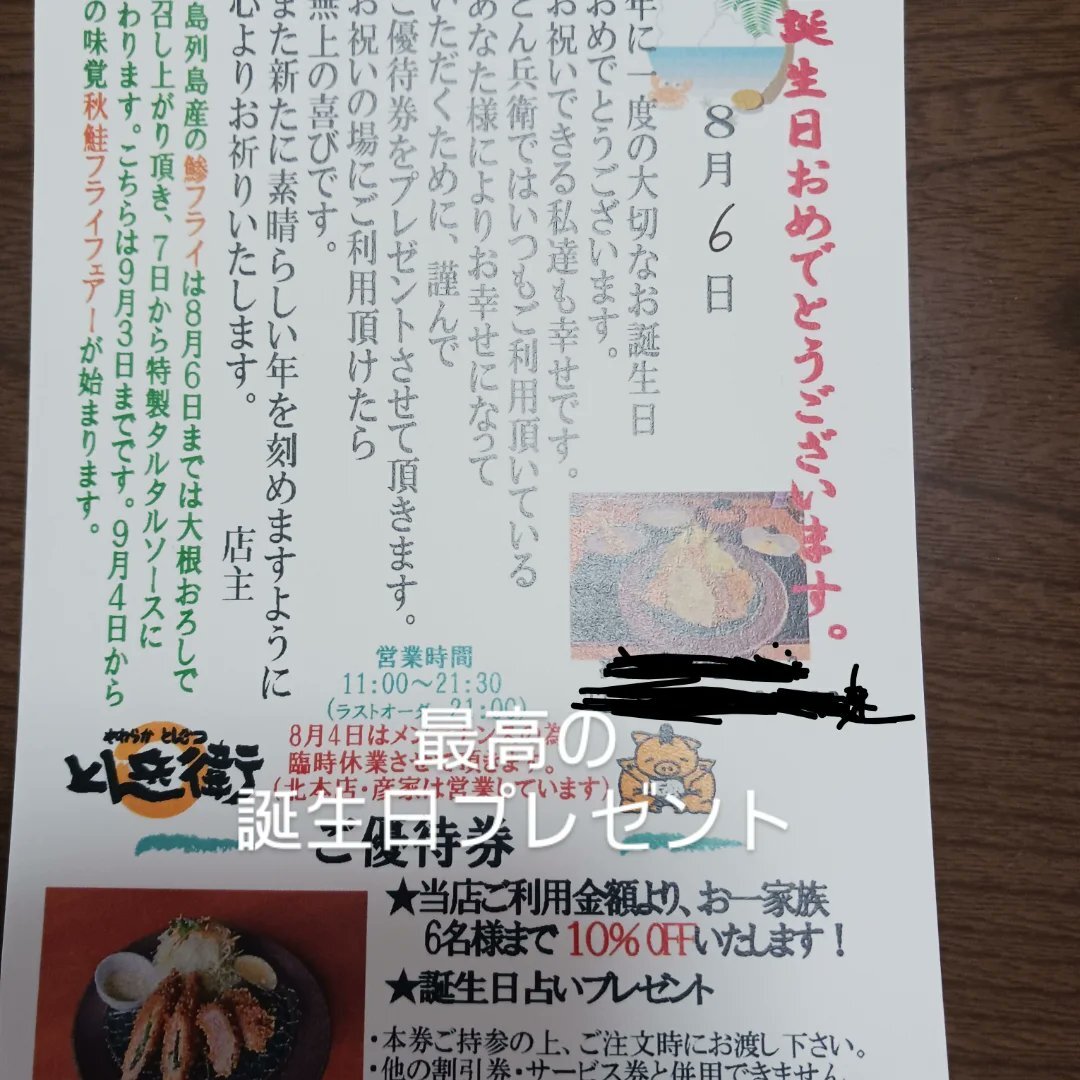 誕生日おめでとうございます。
8月6日
年に一度の大切なお誕生日
おめでとうございます。
お祝いできる私達も幸せです。
とん兵衛ではいつもご利用頂いている
あなた様によりお幸せになって
いただくために、謹んで
ご優待券をプレゼントさせて頂きます。
お祝いの場にご利用頂けたら
無上の喜びです。
また新たに素晴らしい年を刻めますように
心よりお祈りいたします。
店主
島列島産の鯵フライは8月6日までは大根おろしで
召し上がり頂き、7日から特製タルタルソースに
わります。こちらは9月3日までです。9月4日から
の味覚秋鮭フライフェアーが始まります。
営業時間
11:00～21:30
(ラストオーダー 21:00)
8月4日はメンテナンスの為
臨時休業させて頂きます。
(北本店・彦家は営業しています)
やわらか とんかつ
とん兵衛
最高の
誕生日プレゼント
ご優待券
★当店ご利用金額より、お一家族
6名様まで 10% OFFいたします！
★誕生日占いプレゼント
・本券ご持参の上、ご注文時にお渡し下さい。
・他の割引券・サービス券と併用できません